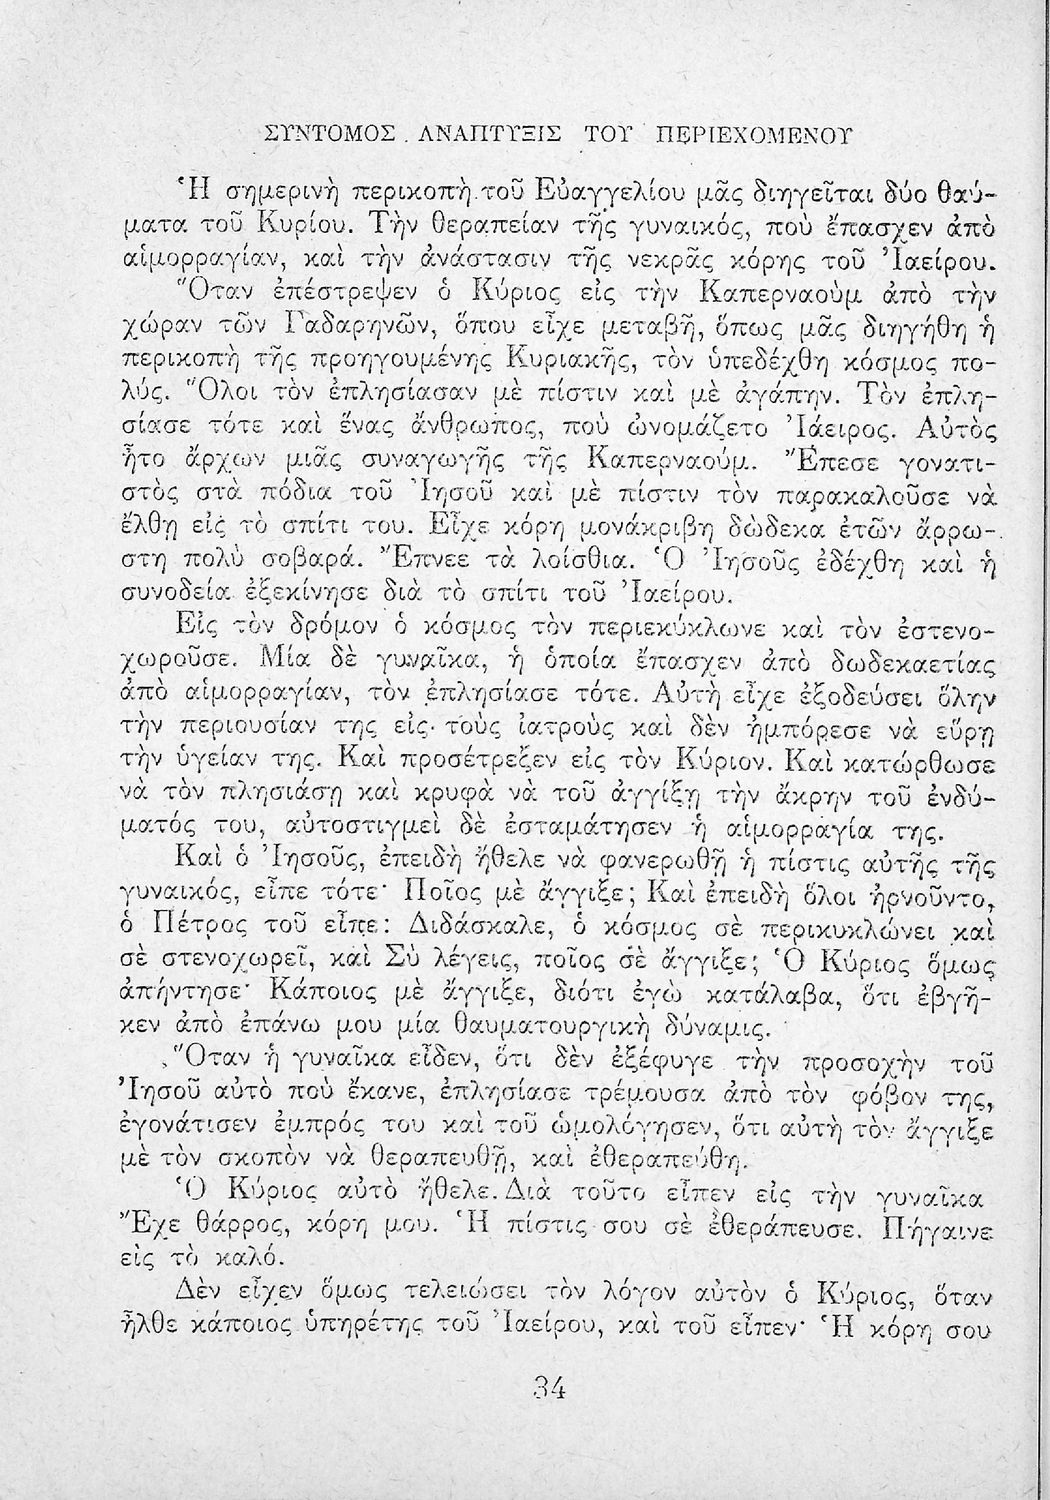 ΣΥΝΤΟΜΟΣ ΑΝΑΠΤΥΞΙΣ ΤΟΥ ΠΕΡΙΕΧΟΜΕΝΟΥ
Ἡ σημερινὴ περικοπὴ τοῦ Εὐαγγελίου μᾶς διηγεῖται δύο θαύ-
ματα τοῦ Κυρίου. Τὴν θεραπείαν τῆς γυναικός, ποὺ ἔπασχεν ἀπὸ
αἱμορραγίαν, καὶ τὴν ἀνάστασιν τῆς νεκρᾶς κόρης τοῦ Ἰαείρου.
Ὅταν ἐπέστρεψεν ὁ Κύριος εἰς τὴν Καπερναοὺμ ἀπὸ τὴν
χώραν τῶν Γαδαρηνῶν, ὅπου εἶχε μεταβῆ, ὅπως μᾶς διηγήθη ἡ
περικοπὴ τῆς προηγουμένης Κυριακῆς, τὸν ὑπεδέχθη κόσμος πο-
λύς. Ὅλοι τὸν ἐπλησίασαν μὲ πίστιν καὶ μὲ ἀγάπην. Τὸν ἐπλη-
σίασε τότε καὶ ἕνας ἄνθρωπος, ποὺ ὠνομάζετο Ἰάειρος. Αὐτὸς
ἦτο ἄρχων μιᾶς συναγωγῆς τῆς Καπερναούμ. Ἔπεσε γονατι-
στὸς στὰ πόδια τοῦ Ἰησοῦ καὶ μὲ πίστιν τὸν παρακαλοῦσε νὰ
ἔλθῃ εἰς τὸ σπίτι του. Εἶχε κόρη μονάκριβη δώδεκα ἐτῶν ἄρρω-
στη πολὺ σοβαρά. Ἔπνεε τὰ λοίσθια. Ὁ Ἰησοῦς ἐδέχθη καὶ ἡ
συνοδεία ἐξεκίνησε διὰ τὸ σπίτι τοῦ Ἰαείρου.
Εἰς τὸν δρόμον ὁ κόσμος τὸν περιεκύκλωνε καὶ τὸν ἐστενο-
χωροῦσε. Μία δὲ γυναῖκα, ἡ ὁποία ἔπασχεν ἀπὸ δωδεκαετίας
ἀπὸ αἱμορραγίαν, τὸν ἐπλησίασε τότε. Αὐτὴ εἶχε ἐξοδεύσει ὅλην
τὴν περιουσίαν της εἰς τοὺς ἰατροὺς καὶ δὲν ἠμπόρεσε νὰ εὕρῃ
τὴν ὑγείαν της. Καὶ προσέτρεξεν εἰς τὸν Κύριον. Καὶ κατώρθωσε
νὰ τὸν πλησιάσῃ καὶ κρυφὰ νὰ τοῦ ἀγγίξῃ τὴν ἄκρην τοῦ ἐνδύ-
ματός του, αὐτοστιγμεὶ δὲ ἐσταμάτησεν ἡ αἱμορραγία της.
Καὶ ὁ Ἰησοῦς, ἐπειδὴ ἤθελε νὰ φανερωθῇ ἡ πίστις αὐτῆς τῆς
γυναικός, εἶπε τότε· Ποῖος μὲ ἄγγιξε; Καὶ ἐπειδὴ ὅλοι ἠρνοῦντο,
ὁ Πέτρος τοῦ εἶπε: Διδάσκαλε, ὁ κόσμος σὲ περικυκλώνει καὶ
σὲ στενοχωρεῖ, καὶ Σὺ λέγεις, ποῖος σὲ ἄγγιξε; Ὁ Κύριος ὅμως
ἀπήντησε· Κάποιος μὲ ἄγγιξε, διότι ἐγὼ κατάλαβα, ὅτι ἐβγῆ-
κεν ἀπὸ ἐπάνω μου μία θαυματουργικὴ δύναμις.
Ὅταν ἡ γυναῖκα εἶδεν, ὅτι δὲν ἐξέφυγε τὴν προσοχὴν τοῦ
Ἰησοῦ αὐτὸ ποὺ ἔκανε, ἐπλησίασε τρέμουσα ἀπὸ τὸν φόβον της,
ἐγονάτισεν ἐμπρός του καὶ τοῦ ὡμολόγησεν, ὅτι αὐτὴ τὸν ἄγγιξε
μὲ τὸν σκοπὸν νὰ θεραπευθῇ, καὶ ἐθεραπεύθη.
Ὁ Κύριος αὐτὸ ἤθελε. Διὰ τοῦτο εἶπεν εἰς τὴν γυναῖκα
Ἔχε θάρρος, κόρη μου. Ἡ πίστις σου σὲ ἐθεράπευσε. Πήγαινε
εἰς τὸ καλό.
Δὲν εἶχεν ὅμως τελειώσει τὸν λόγον αὐτὸν ὁ Κύριος, ὅταν
ἦλθε κάποιος ὑπηρέτης τοῦ Ἰαείρου, καὶ τοῦ εἶπεν· Ἡ κόρη σου
34